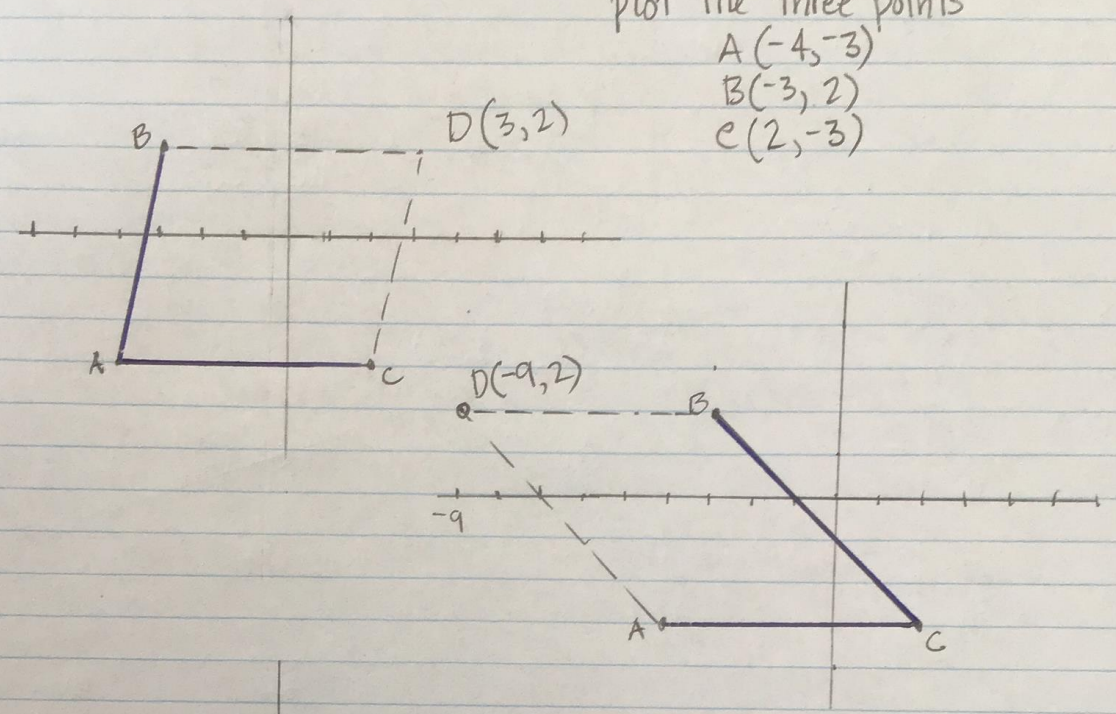 plot the three points
A (-4, -3)
B(-3, 2)
C (2, -3)
B
D(3,2)
A
C
D(-9,2)
B
-9
A
C